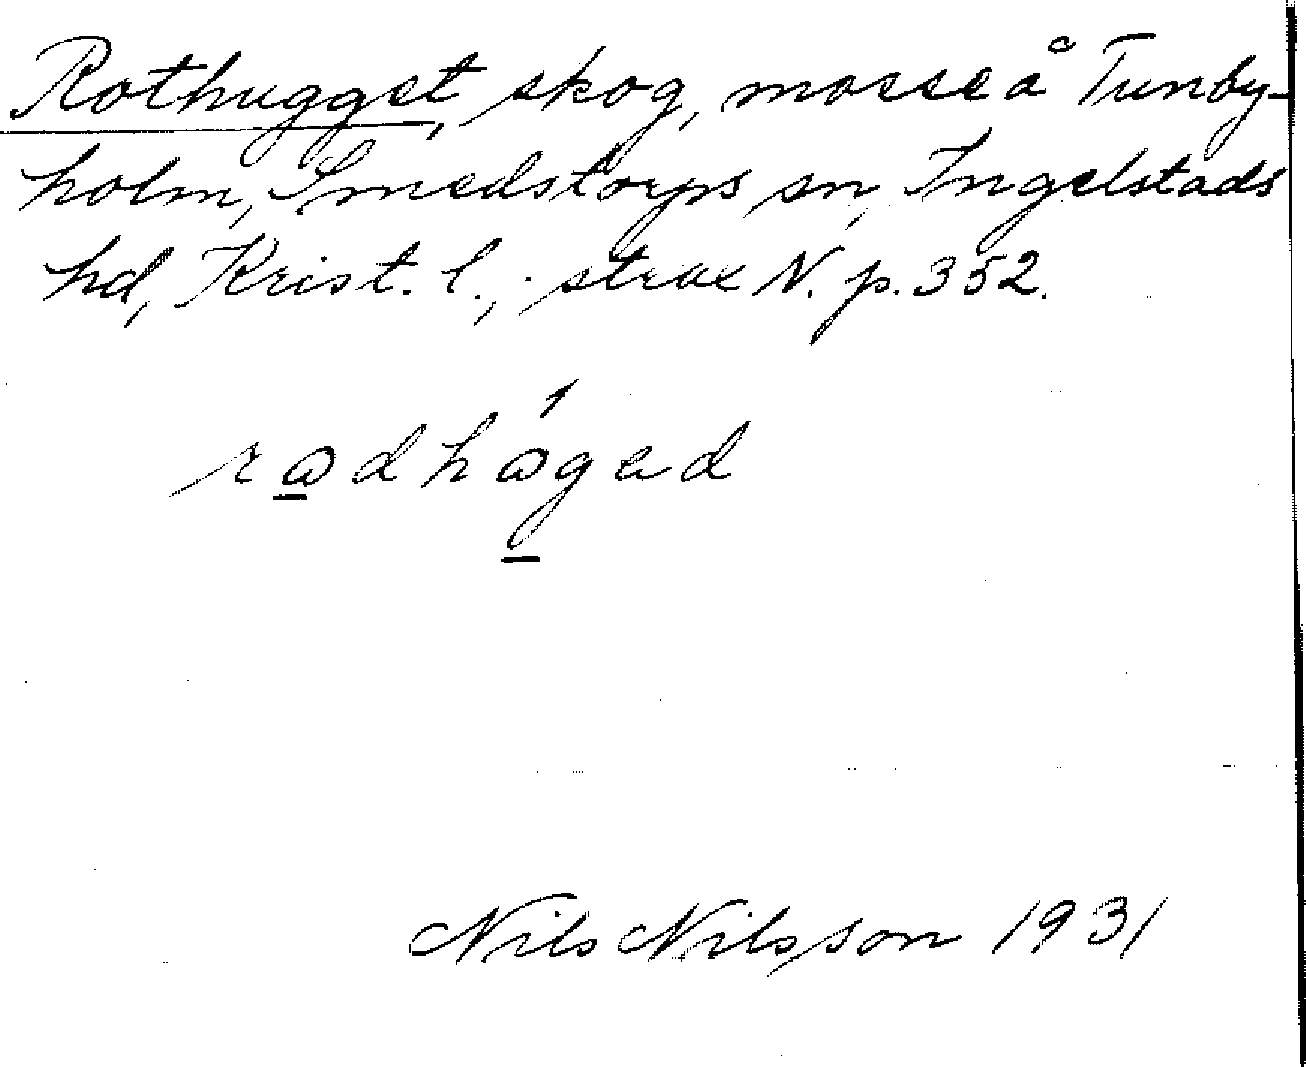 Rothugget, skog, mosse å Tunby-
holm, Smedstorps sn, Ingelstads
hd, Krist. l., strax N. p. 352.
Nils Nilsson 1931